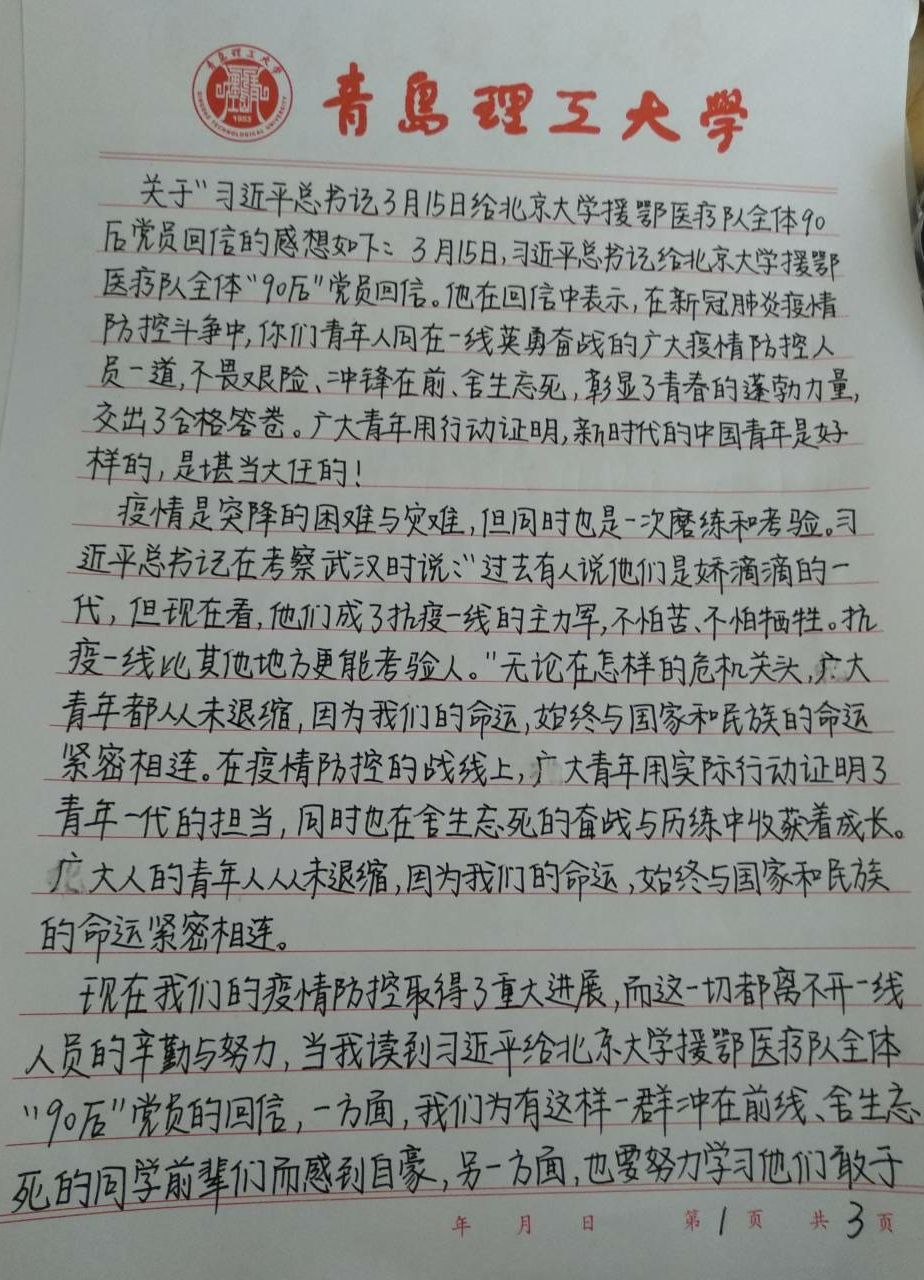 青岛理工大学
QINGDAO TECHNOLOGICAL UNIVERSITY
1953
青岛理工大学
关于"习近平总书记3月15日给北京大学援鄂医疗队全体90
后党员回信的感想如下：3月15日,习近平总书记给北京大学援鄂
医疗队全体"90后"党员回信。他在回信中表示,在新冠肺炎疫情
防控斗争中,你们青年人同在一线英勇奋战的广大疫情防控人
员一道,不畏艰险、冲锋在前、舍生忘死,彰显了青春的蓬勃力量,
交出了合格答卷。广大青年用行动证明,新时代的中国青年是好
样的,是堪当大任的!
疫情是突降的困难与灾难,但同时也是一次磨练和考验。习
近平总书记在考察武汉时说："过去有人说他们是娇滴滴的一
代,但现在看,他们成了抗疫一线的主力军,不怕苦、不怕牺牲。抗
疫一线比其他地方更能考验人。"无论在怎样的危机关头,广大
青年都从未退缩,因为我们的命运,始终与国家和民族的命运
紧密相连。在疫情防控的战线上,广大青年用实际行动证明了
青年一代的担当,同时也在舍生忘死的奋战与历练中收获着成长。
广大人的青年人从未退缩,因为我们的命运,始终与国家和民族
的命运紧密相连。
现在我们的疫情防控取得了重大进展,而这一切都离不开一线
人员的辛勤与努力,当我读到习近平给北京大学援鄂医疗队全体
"90后"党员的回信,一方面,我们为有这样一群冲在前线、舍生忘
死的同学前辈们而感到自豪,另一方面,也要努力学习他们敢于
年 月 日 第1页 共3页